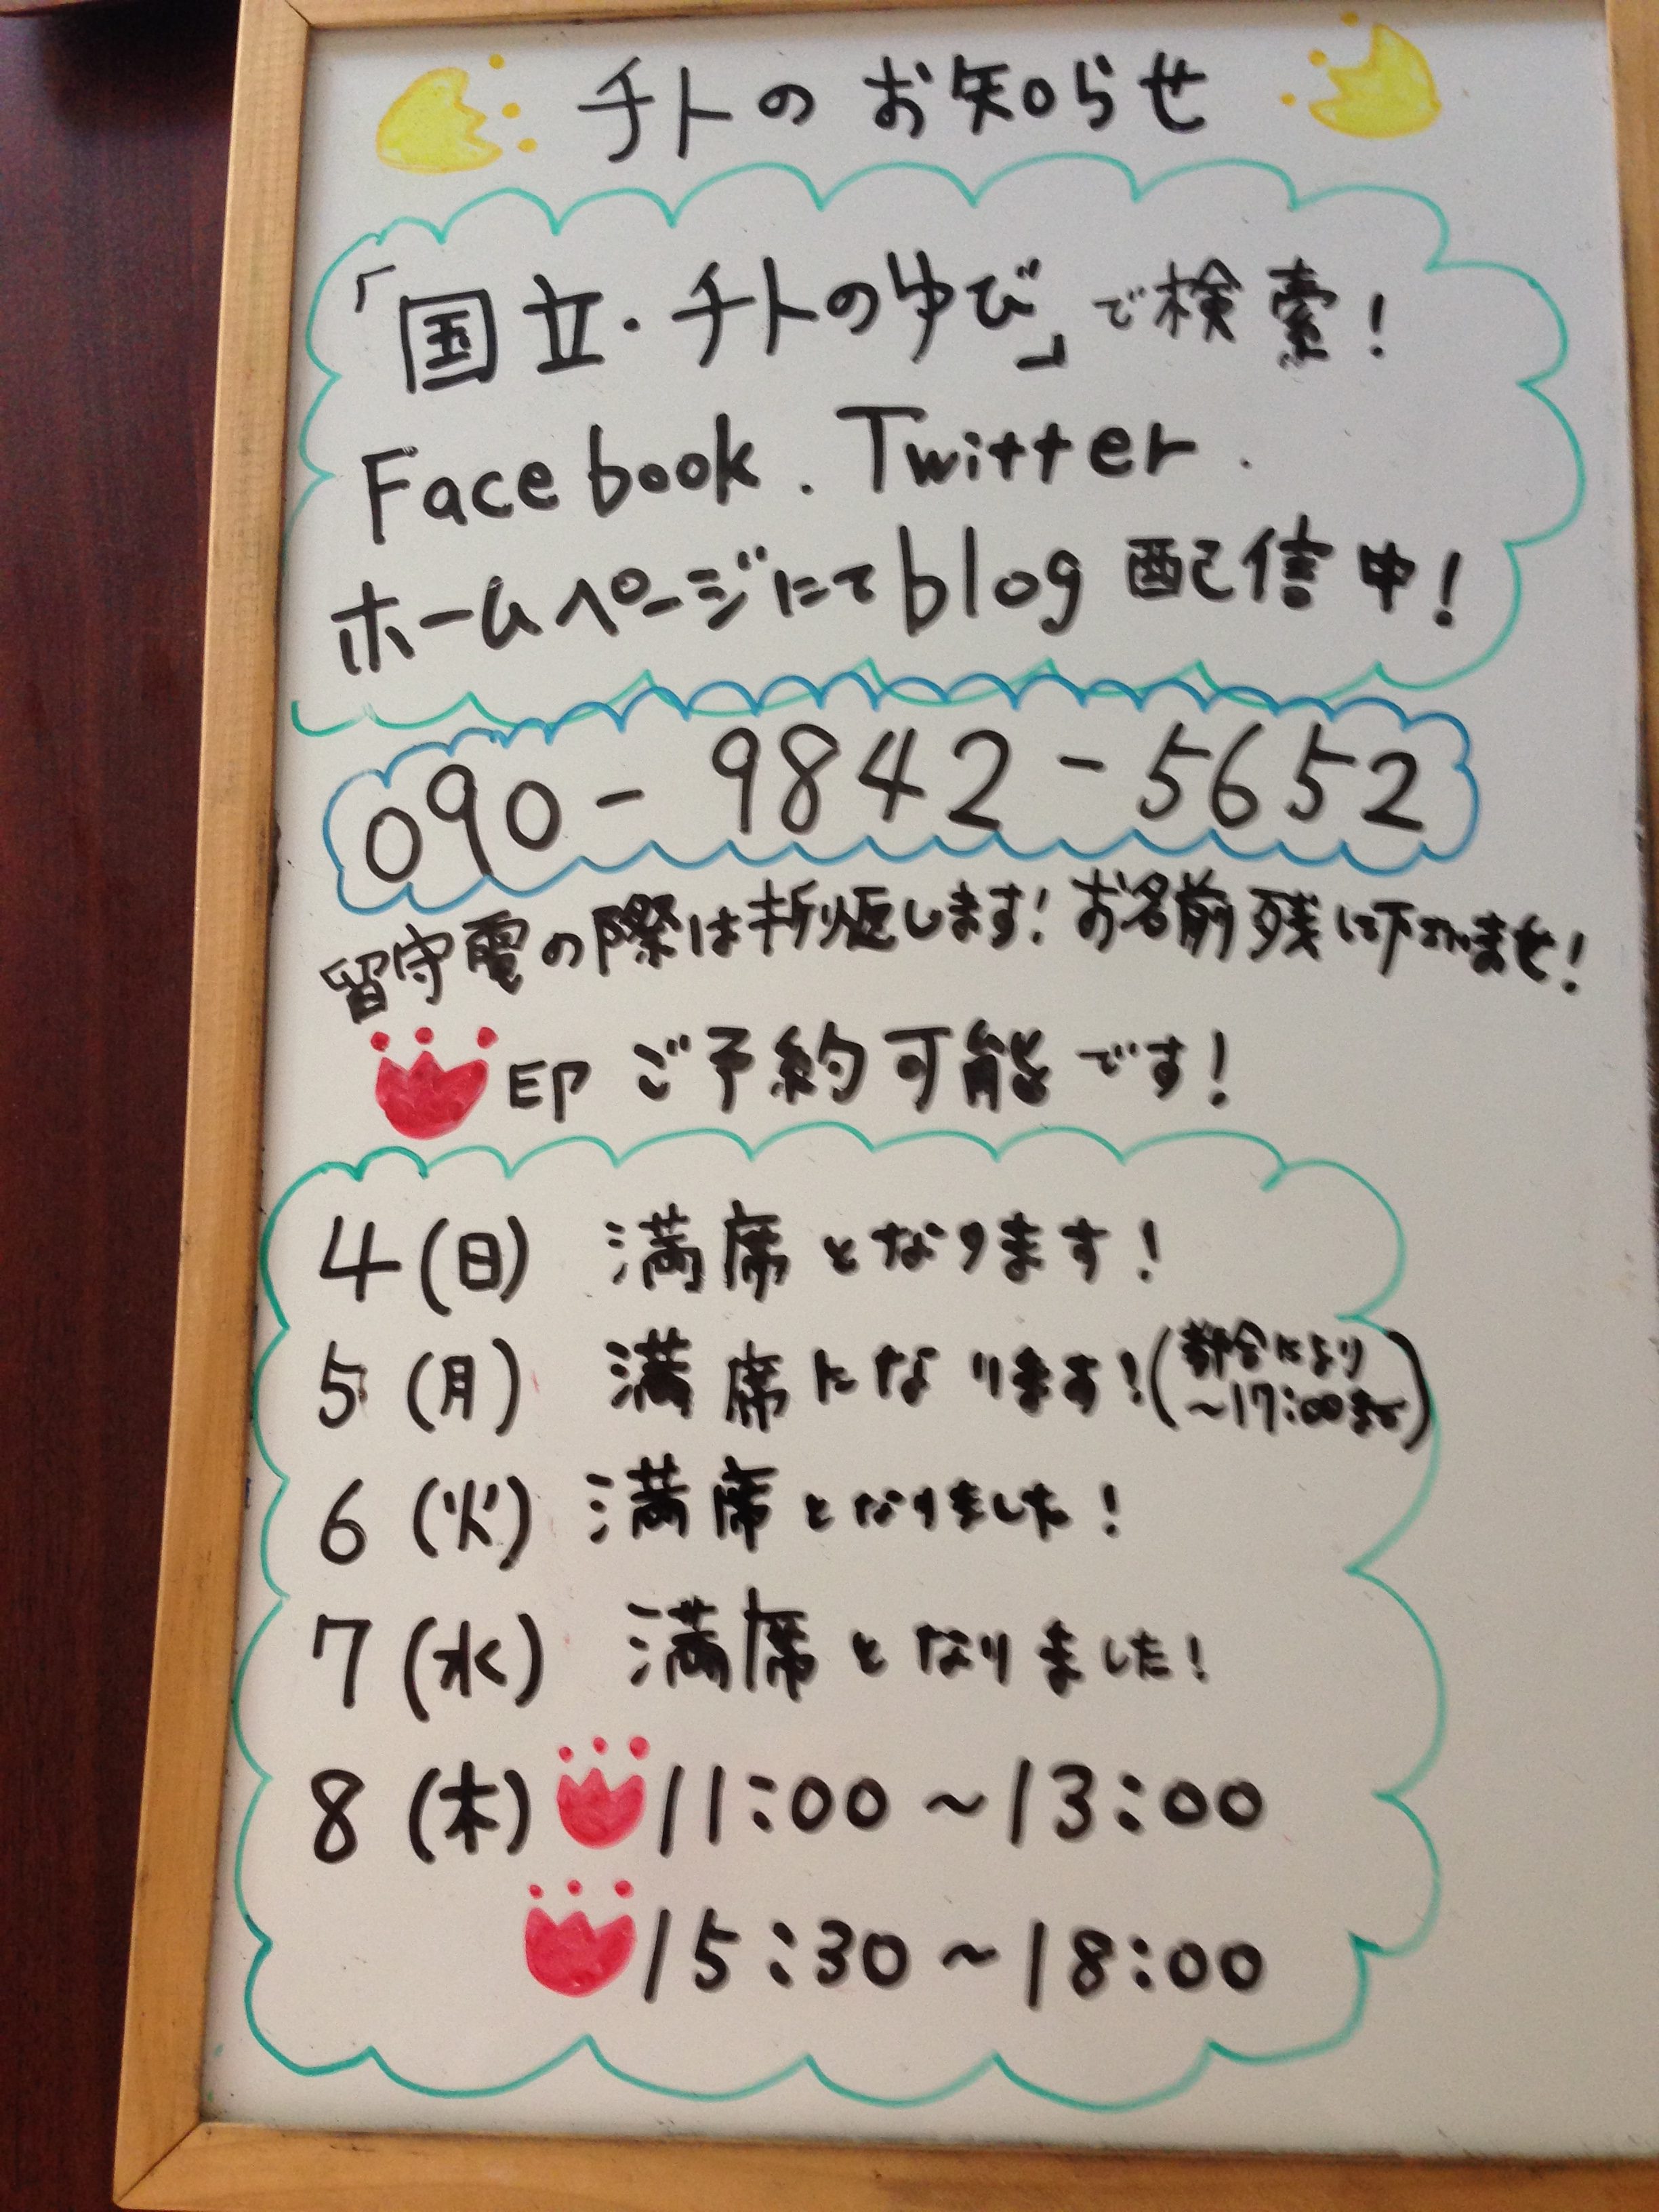 チトのお知らせ
「国立・チトのゆび」で検索!
Facebook. Twitter.
ホームページにてblog配信中!
090-9842-5652
留守電の際は折り返します!お名前残して下さいませ!
印 ご予約可能です!
4(日) 満席となります!
5(月) 満席になります!(都合により
～17:00まで)
6(火) 満席となりました!
7(水) 満席となりました!
8(木) 11:00～13:00
15:30～18:00